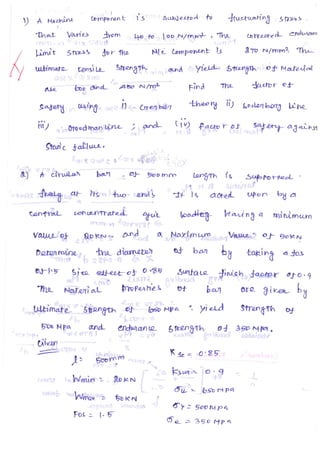 1) A Machine component is subjected to fluctuating stress
That Varies from 40 to 100 N/mm² . The corrected endurance
Limit stress for the M/c component is 270 N/mm². The
ultimate tensile strength and yield strength of Material
are 600 and 450 N/mm² Find The factor of
safety using i) Gerber theory ii) Soderberg Line
iii) Goodman Line ; and (iv) factor of safety against
Static failure.
2) A circular bar of 500mm length is supported
freely at its two ends. It is acted upon by a
central concentrated cyclic loading Having a minimum
value of 20KN and a Maximum Value of 50KN
Determine the diameter of bar by taking a fos
of 1.5 size effect of 0.85 surface finish factor of 0.9
The Material properties of bar are given by
ultimate strength of 650 MPa yield strength of
500 MPa and endurance strength of 350 MPa.
Given
l = 500mm
Wmin = 20KN
Wmax = 50KN
FOS = 1.5
Ksz = 0.85
Ksur = 0.9
σu = 650MPa
σy = 500MPa
σe = 350 MPa